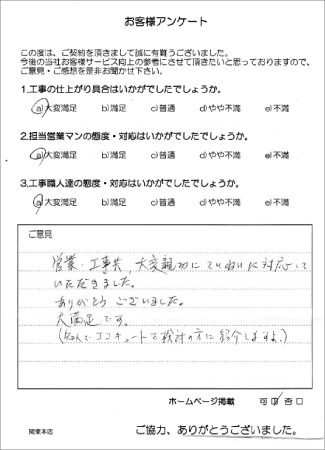 お客様アンケート
この度は、ご契約を頂きまして誠に有難うございました。
今後の当社お客様サービス向上の参考にさせて頂きたいと思っておりますので、
ご意見・ご感想を是非お聞かせ下さい。
1.工事の仕上がり具合はいかがでしたでしょうか。
a)大変満足 b)満足 c)普通 d)やや不満 e)不満
2.担当営業マンの態度・対応はいかがでしたでしょうか。
a)大変満足 b)満足 c)普通 d)やや不満 e)不満
3.工事職人達の態度・対応はいかがでしたでしょうか。
a)大変満足 b)満足 c)普通 d)やや不満 e)不満
ご意見
営業・工事共、大変親切にていねいに対応して
いただきました。
ありがとうございました。
大満足です。
(知人でエコキュートを検討の方に紹介しますよ。)
ホームページ掲載 可 否
関東本店
ご協力、ありがとうございました。